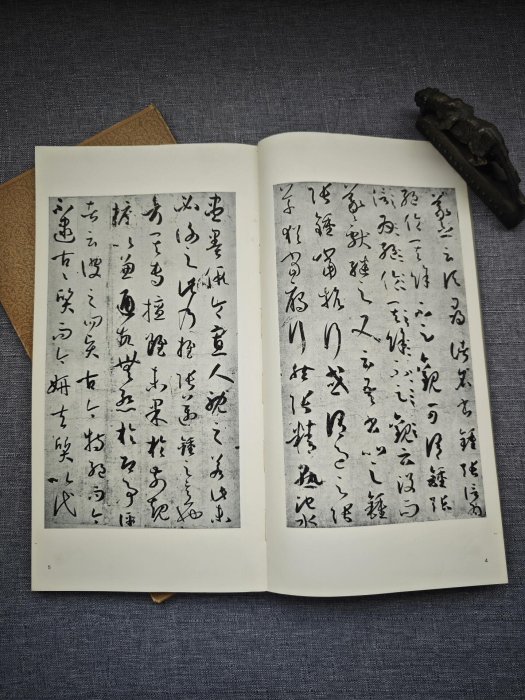 羲之云頃尋諸名書鍾張信為
絕倫其餘不足觀可謂鍾張
信為絕倫其餘不足觀云沒而
羲獻繼之又云吾書比之鍾
張鍾當抗行或謂過之張
草猶當雁行然張精熟池水
4
盡墨假令寡人耽之若此未
必謝之此乃推張邁鍾之意也
考其專擅雖未果於前規
摭以兼通故無慚於即事評
者云彼之四賢古今特絕而今
不逮古古質而今妍夫質以代
5